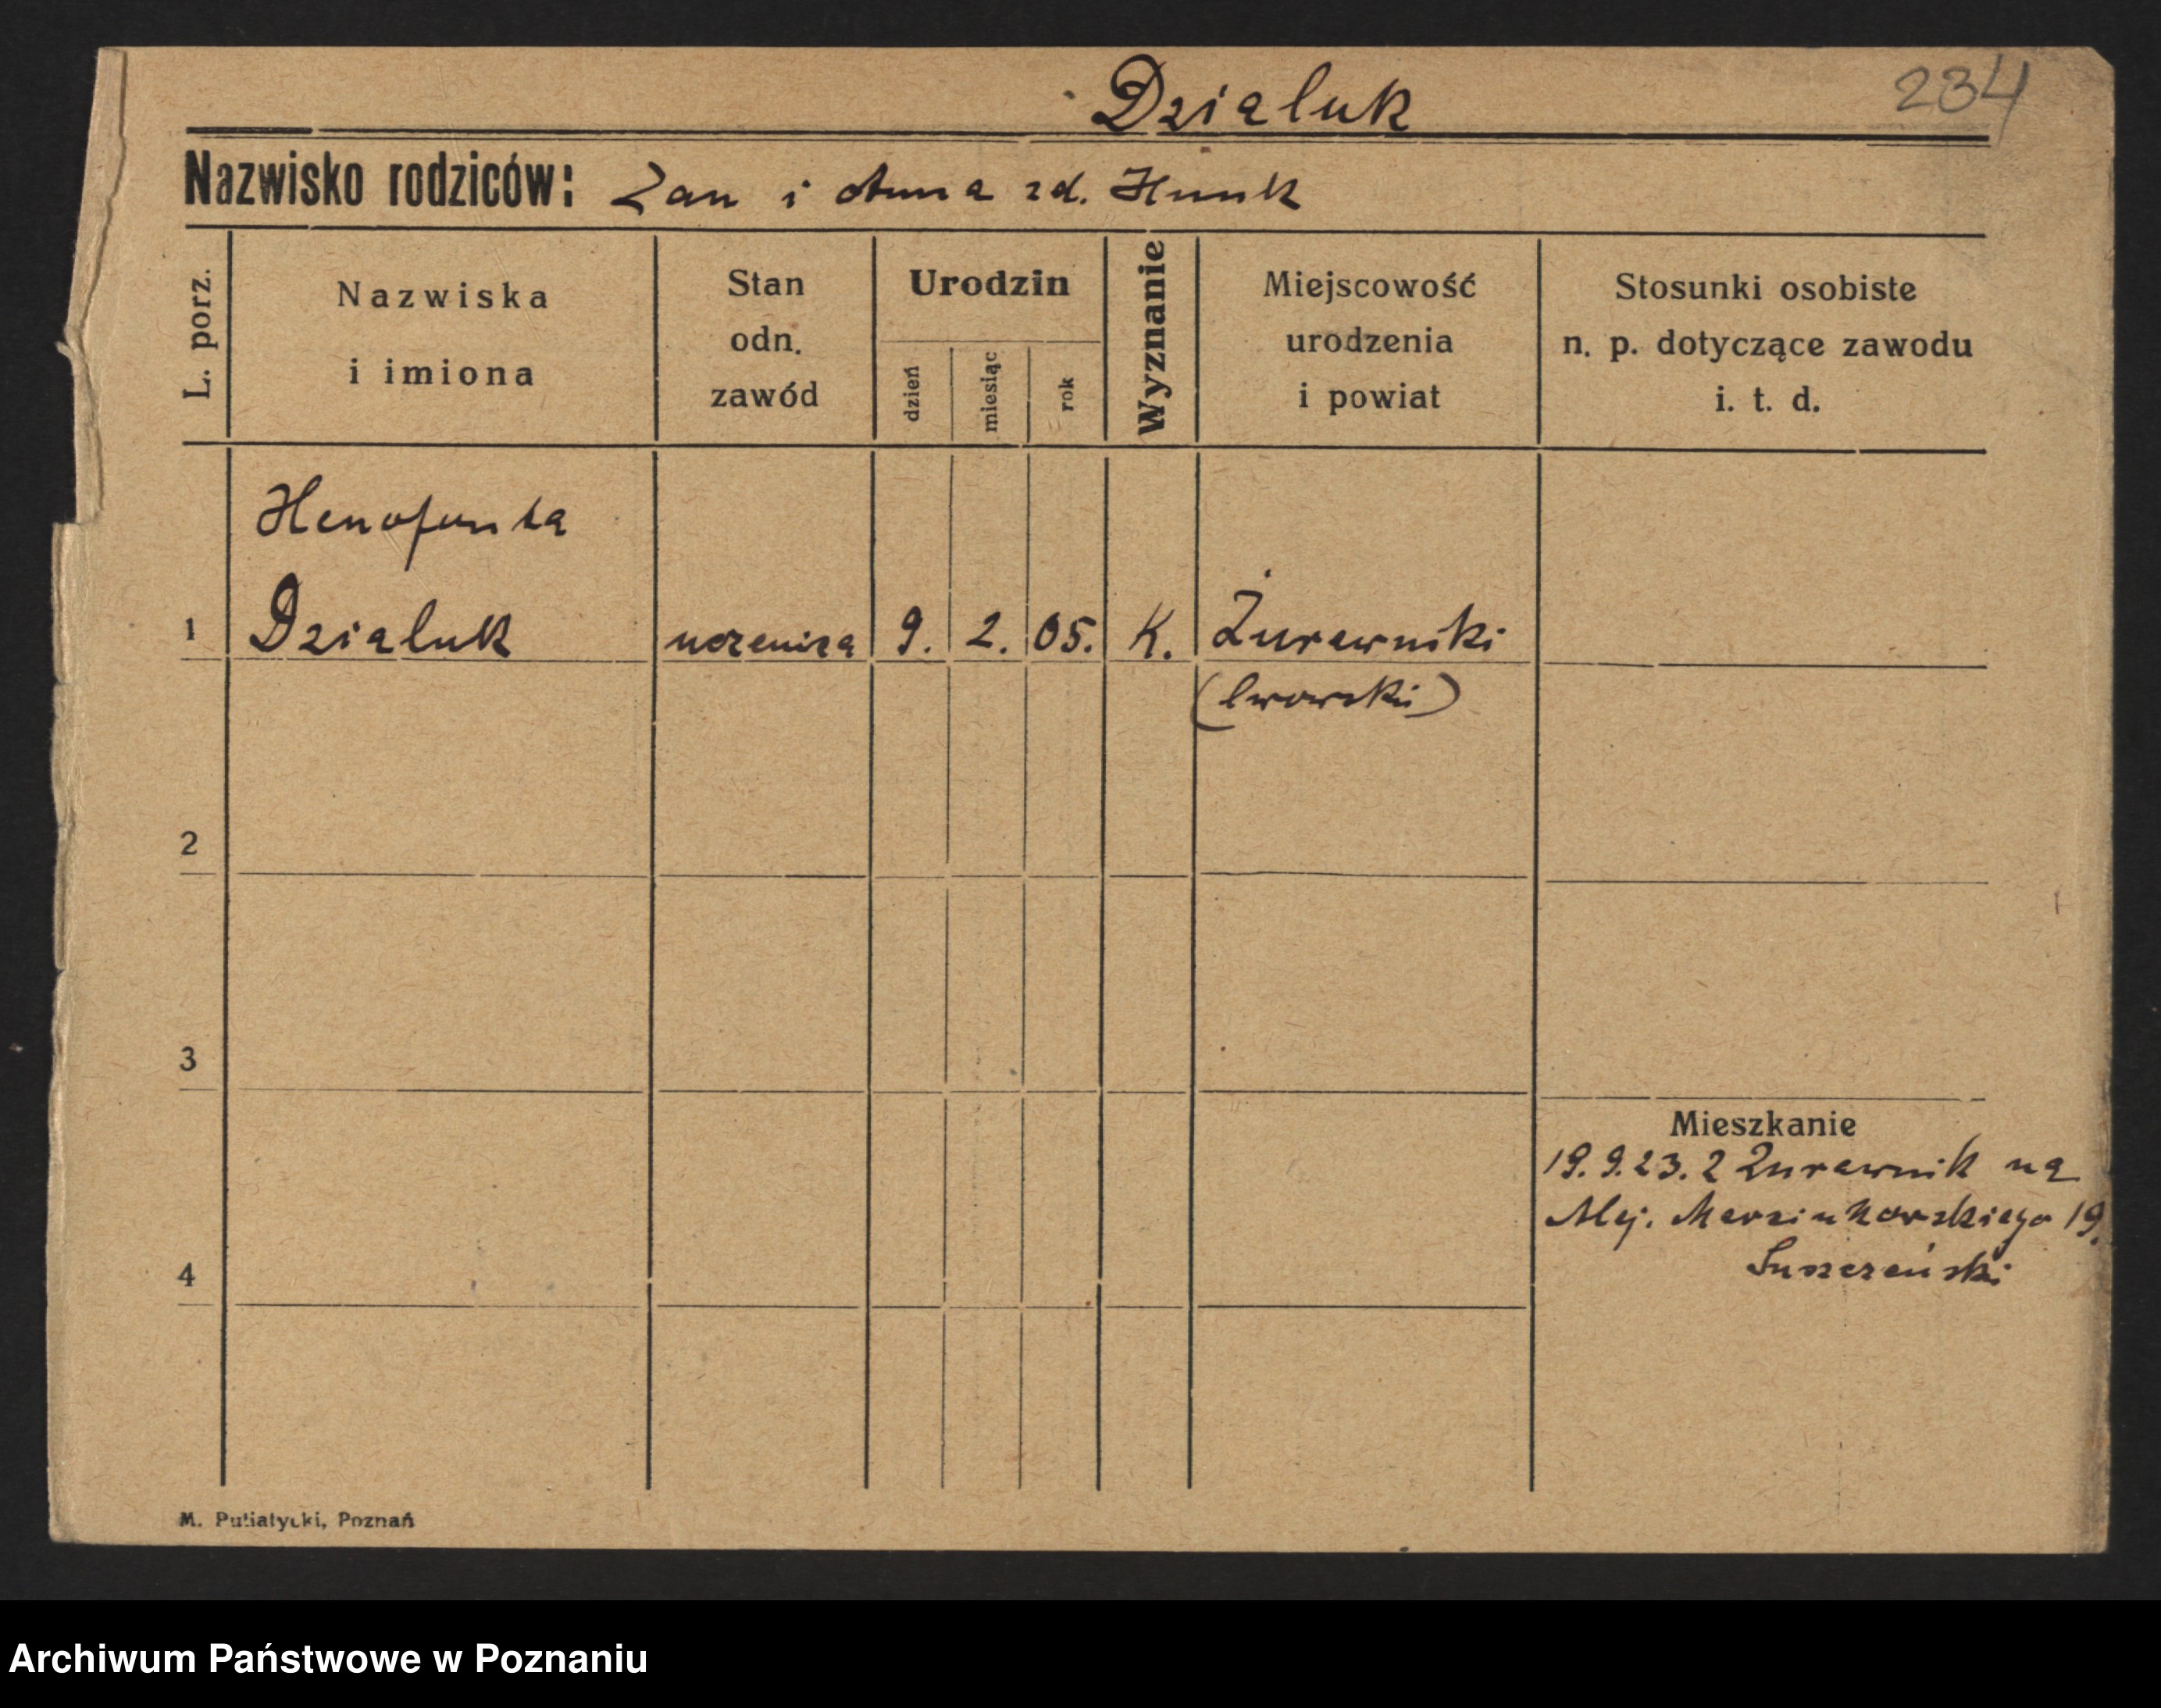 Dzialuk
234
Nazwisko rodziców: Jan i Anna zd. Hunk
L. porz.
Nazwiska
i imiona
Stan
odn.
zawód
Urodzin
dzień
miesiąc
rok
Wyznanie
Miejscowość
urodzenia
i powiat
Stosunki osobiste
n. p. dotyczące zawodu
i. t. d.
Henofonta
1 Dzialuk uczenica 9. 2. 05. K. Żurawniki
(lwowski)
2
3
Mieszkanie
19.9.23. z Żurawnik na
Alej. Marcinkowskiego 19.
Suszczeński
4
M. Putiatycki, Poznań
Archiwum Państwowe w Poznaniu